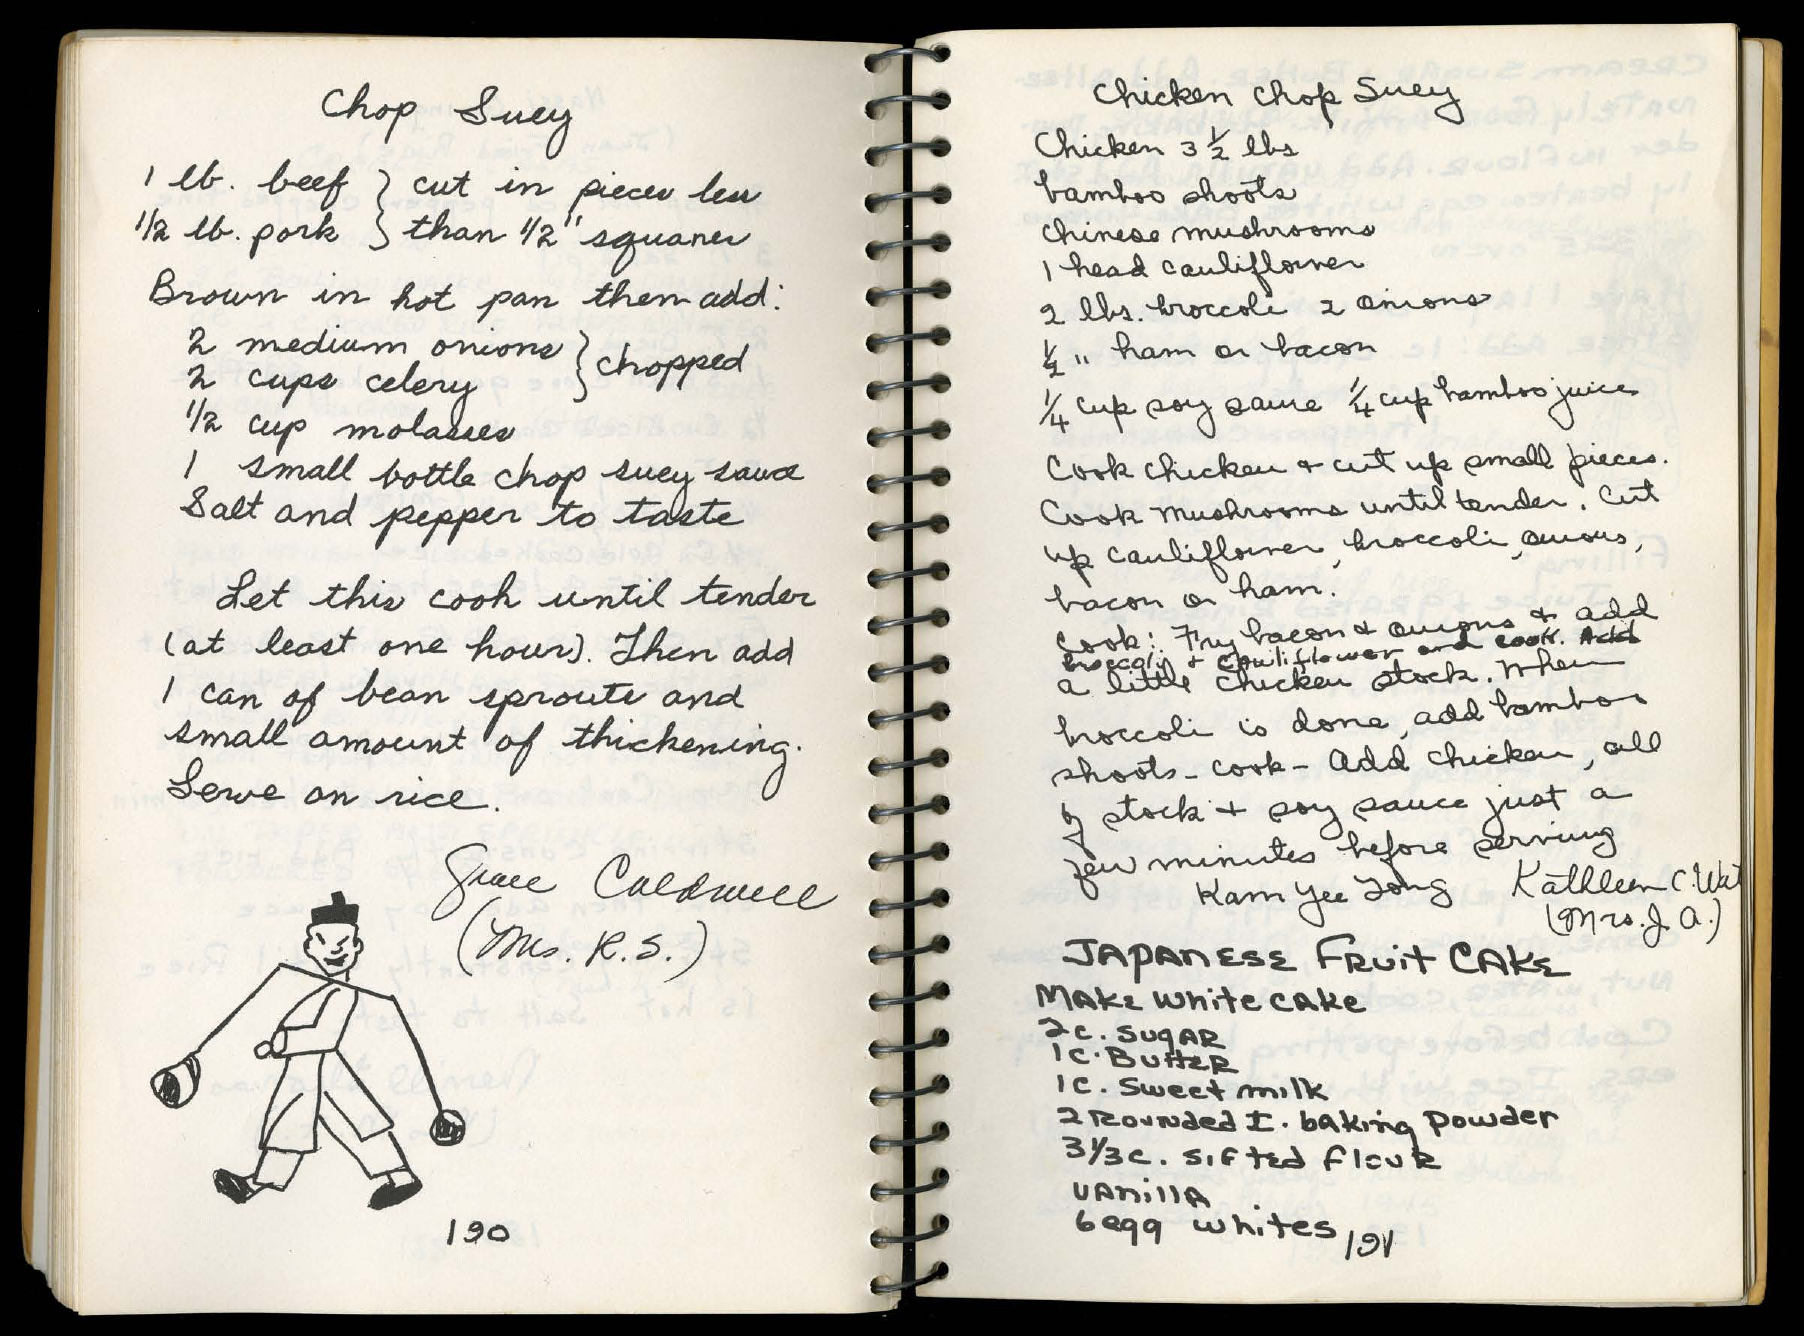 Chop Suey
1 lb. beef } cut in pieces less
1/2 lb. pork } than 1/2" squares
Brown in hot pan then add:
2 medium onions } chopped
2 cups celery
1/2 cup molasses
1 small bottle chop suey sauce
Salt and pepper to taste
Let this cook until tender
(at least one hour). Then add
1 can of bean sprouts and
small amount of thickening.
Serve on rice.
Grace Caldwell
(Mrs. R.S.)
190
Chicken Chop Suey
Chicken 3 1/2 lbs
bamboo shoots
Chinese mushrooms
1 head cauliflower
2 lbs. broccoli 2 onions
1/2 " ham or bacon
1/4 cup soy sauce 1/4 cup bamboo juice
Cook chicken + cut up small pieces.
Cook mushrooms until tender. Cut
up cauliflower, broccoli, onions,
bacon or ham.
Cook: Fry bacon & onions & add
broccoli & cauliflower and cook. Add
a little chicken stock. When
broccoli is done, add bamboo
shoots - cook - Add chicken, all
of stock + soy sauce just a
few minutes before serving
Kam Yee Tong Kathleen C.
(Mrs. J. A.)
JAPANESE FRUIT CAKE
MAKE White CAKE
2 c. SugAR
1 c. ButteR
1 c. Sweet milk
2 Rounded T. bAking Powder
3 1/3 c. sifted flouR
VAnillA
6 egg whites
191